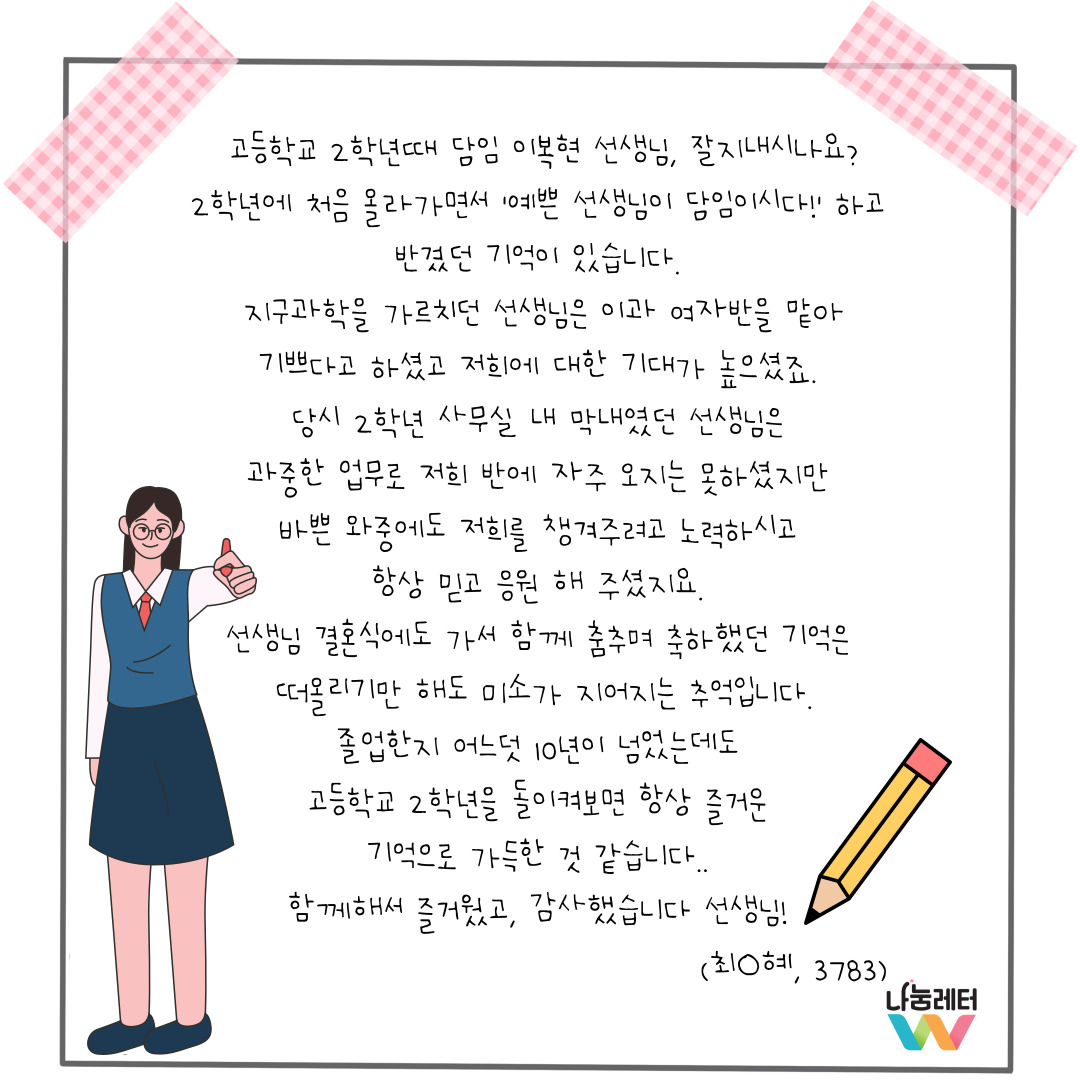 고등학교 2학년때 담임 이복현 선생님, 잘지내시나요?
2학년에 처음 올라가면서 '예쁜 선생님이 담임이시다!' 하고
반겼던 기억이 있습니다.
지구과학을 가르치던 선생님은 이과 여자반을 맡아
기쁘다고 하셨고 저희에 대한 기대가 높으셨죠.
당시 2학년 사무실 내 막내였던 선생님은
과중한 업무로 저희 반에 자주 오지는 못하셨지만
바쁜 와중에도 저희를 챙겨주려고 노력하시고
항상 믿고 응원 해 주셨지요.
선생님 결혼식에도 가서 함께 춤추며 축하했던 기억은
떠올리기만 해도 미소가 지어지는 추억입니다.
졸업한지 어느덧 10년이 넘었는데도
고등학교 2학년을 돌이켜보면 항상 즐거운
기억으로 가득한 것 같습니다..
함께해서 즐거웠고, 감사했습니다 선생님!
(최O혜, 3783)
나눔레터